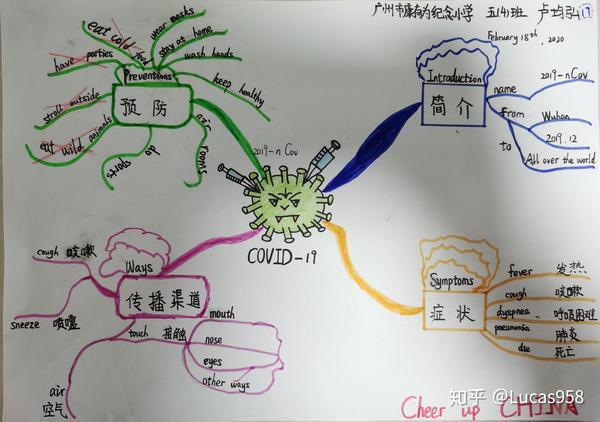 广州市康有为纪念小学 五(4)班 卢均弘 17
February 18th, 2020
Preventions
预防
wear masks
eat cold food
stay at home
have parties
wash hands
keep healthy
stroll outside
eat wild animals
do sports
rooms
Introduction
简介
name
2019-nCov
From
Wuhan
2019.12
to
All over the world
2019-nCov
COVID-19
Ways
传播渠道
cough 咳嗽
sneeze 喷嚏
touch 接触
mouth
nose
eyes
other ways
air
空气
Symptoms
症状
fever 发热
cough 咳嗽
dyspnea 呼吸困难
pneumonia 肺炎
die 死亡
Cheer up CHINA
知乎 @Lucas958